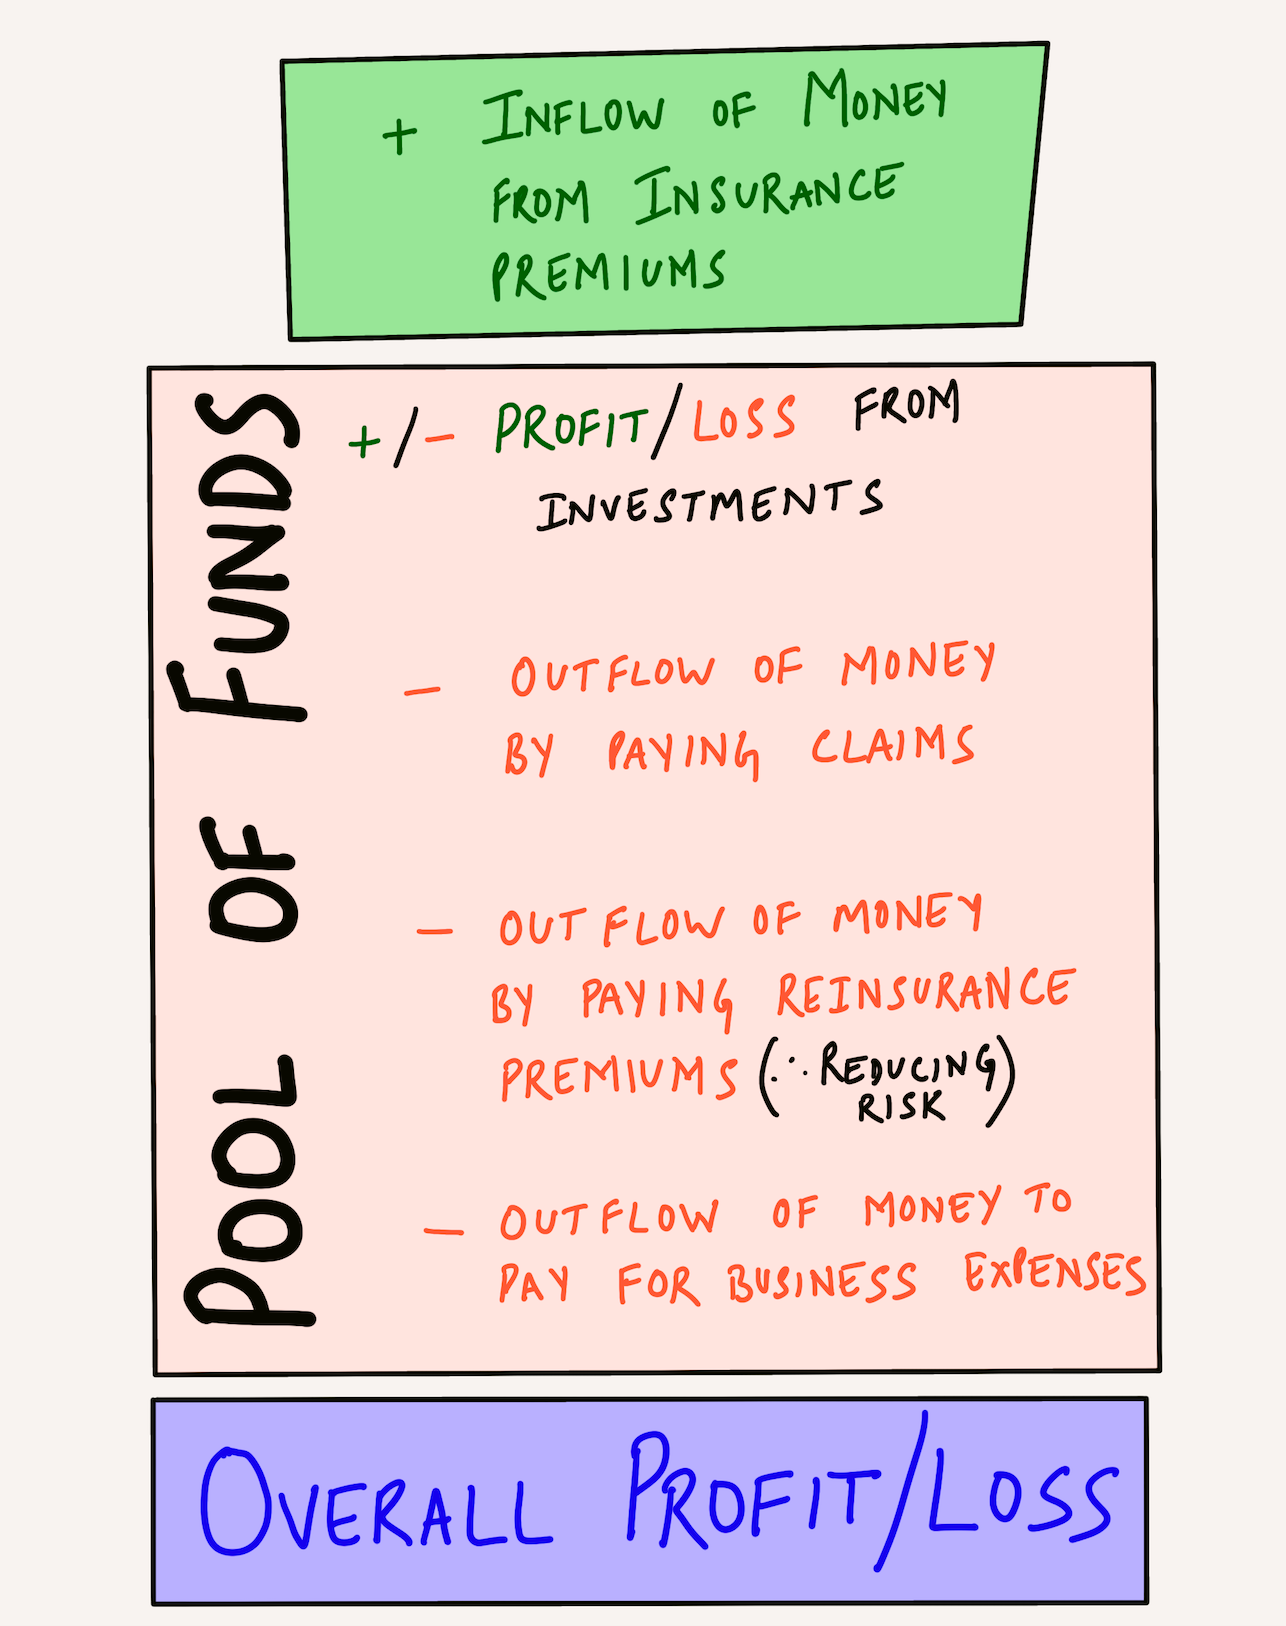 + INFLOW OF MONEY
FROM INSURANCE
PREMIUMS
POOL OF FUNDS
+/- PROFIT/LOSS FROM
INVESTMENTS
- OUTFLOW OF MONEY
BY PAYING CLAIMS
- OUTFLOW OF MONEY
BY PAYING REINSURANCE
PREMIUMS (∴ REDUCING
RISK)
- OUTFLOW OF MONEY TO
PAY FOR BUSINESS EXPENSES
OVERALL PROFIT/LOSS